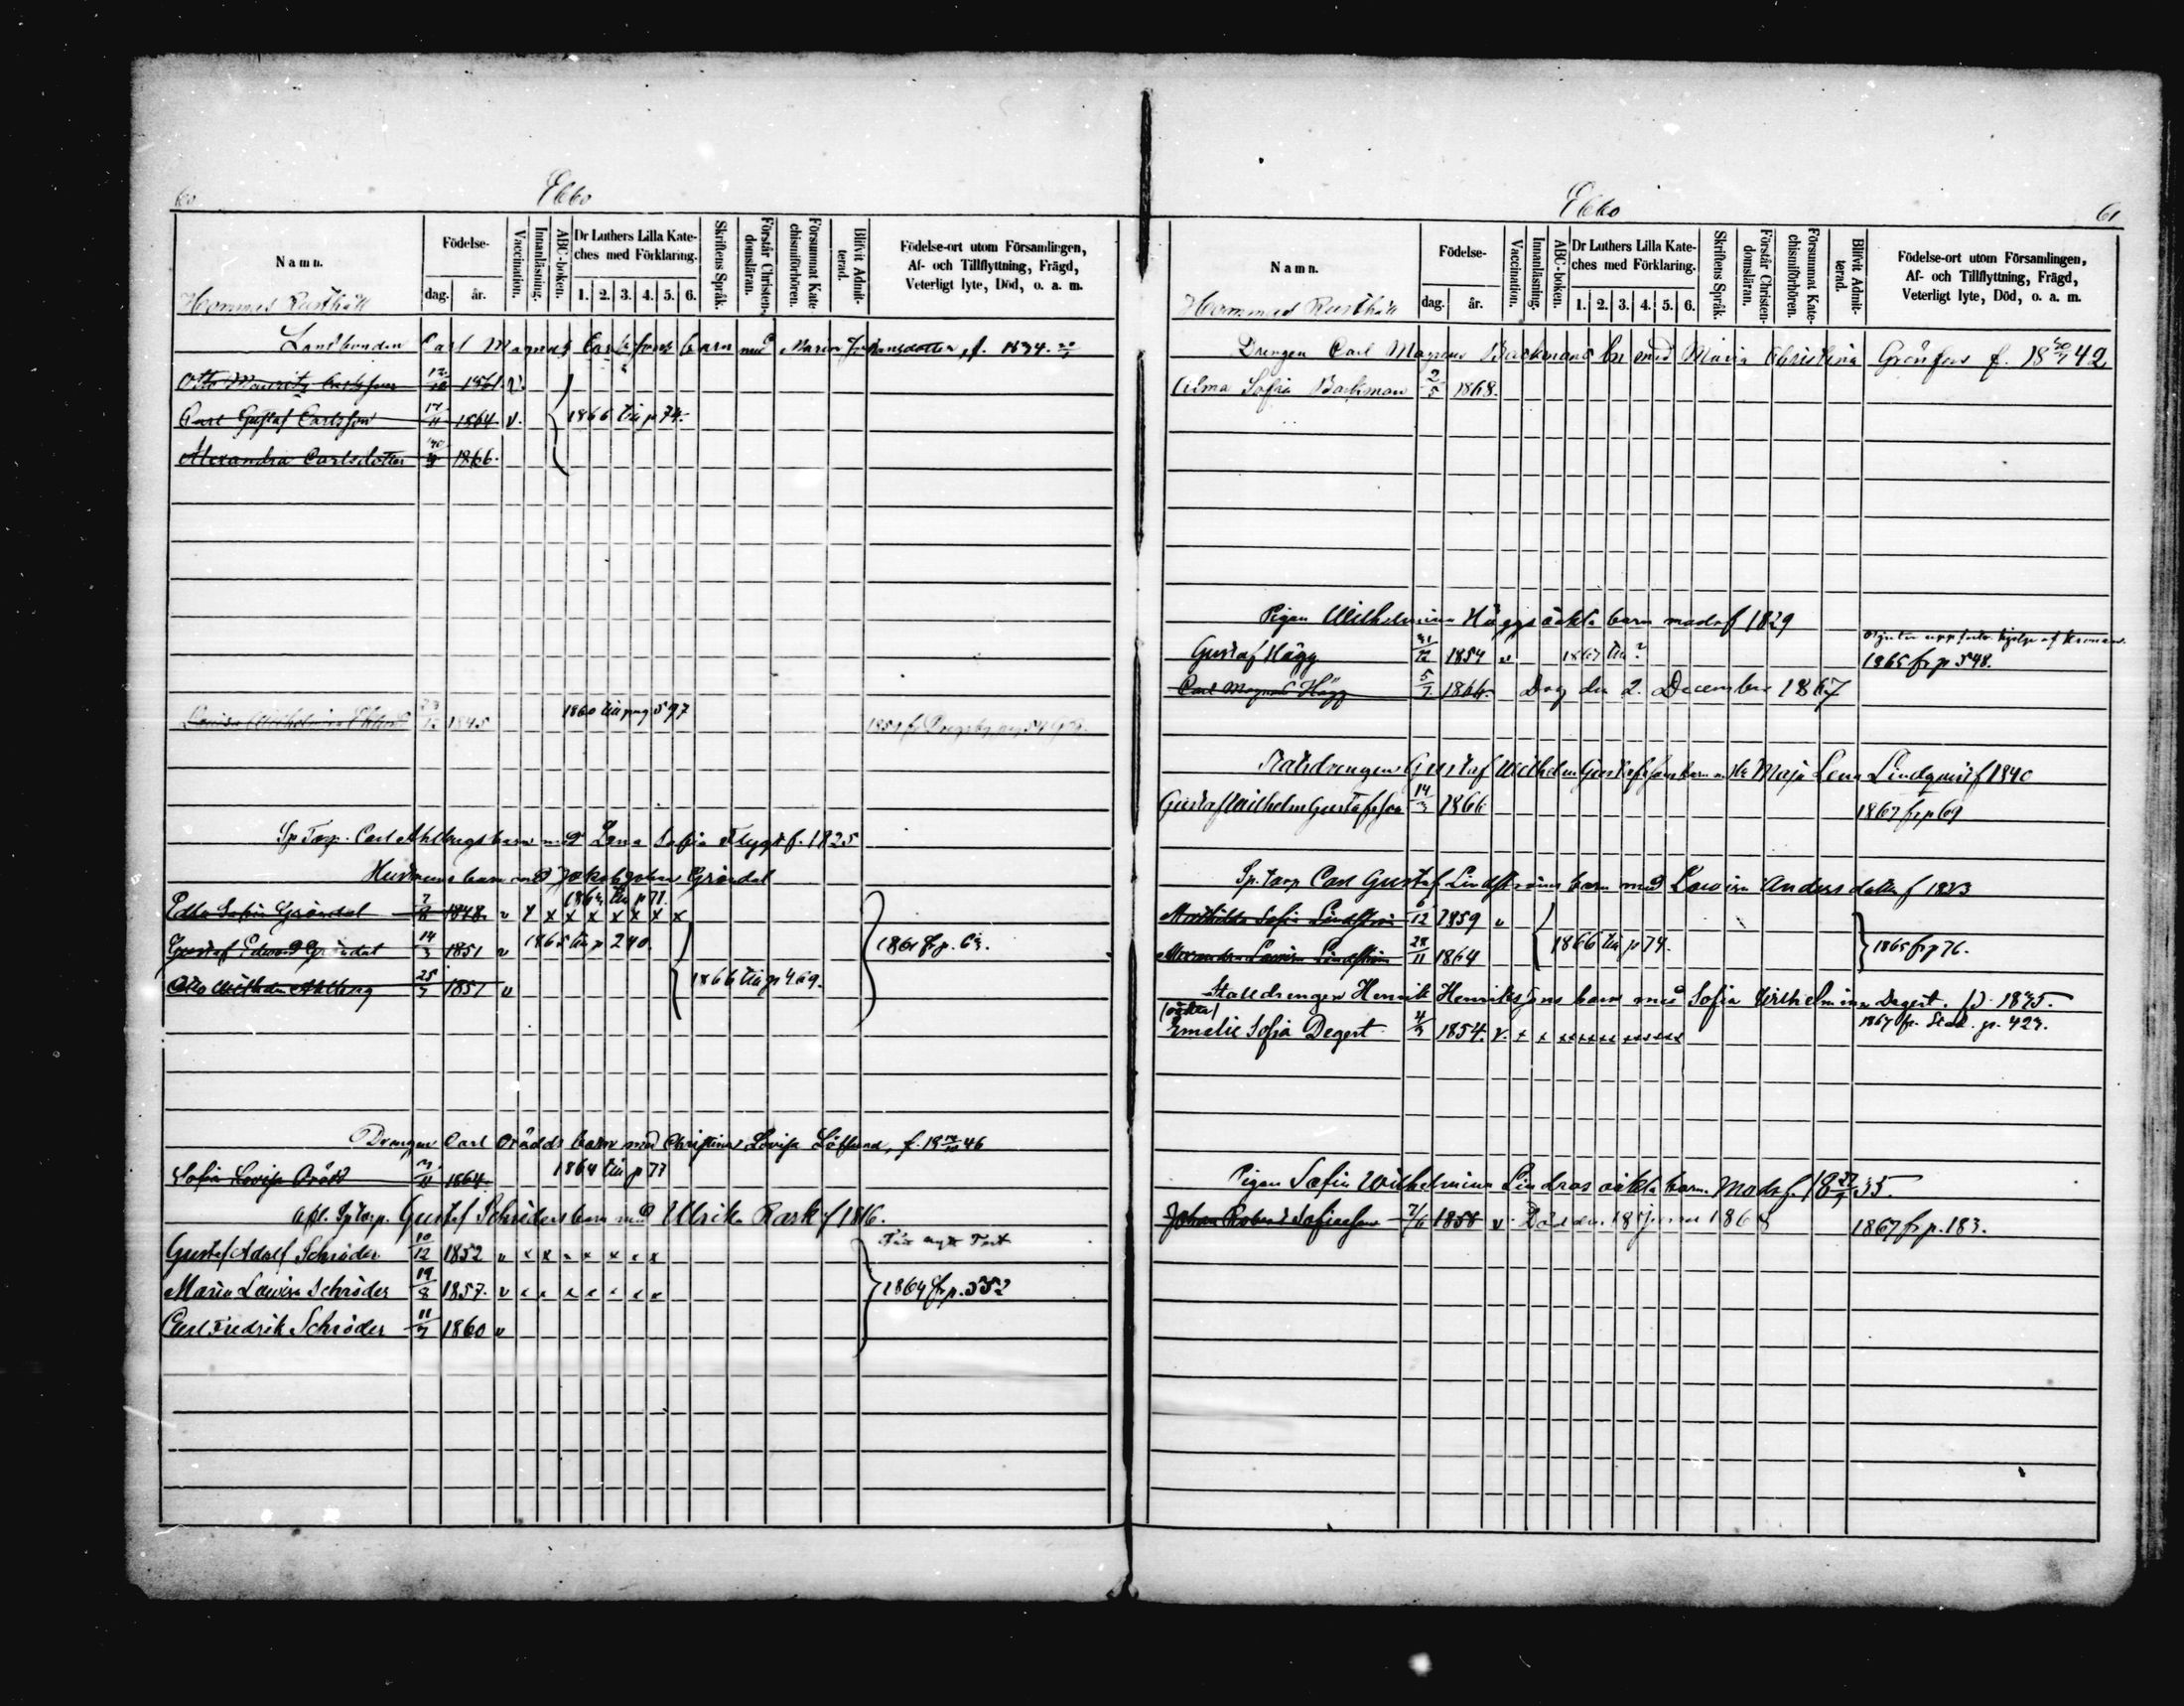 60
Ebbo
Namn.
Födelse-
dag.
år.
Vaccination.
Innanläsning.
ABC-boken.
Dr Luthers Lilla Kate-
ches med Förklaring.
1. 2. 3. 4. 5. 6.
Skriftens Språk.
Förstår Christen-
domsläran.
Försummat Kate-
chismiförhören.
Blifvit Admit-
terad.
Födelse-ort utom Församlingen,
Af- och Tillflyttning, Frägd,
Veterligt lyte, Död, o. a. m.
Hommas Rusthåll
Landbonden Carl Magnus barn med Maria f. 1834.
Otto Mauritz 1861 v.
Carl Gustaf Carlsson 17/11 1864 v. 1866 till p 74.
Alexandra Carlsdotter 1866.
Lovisa Wilhelmina 1845 1860 till pag 597
Sp Torp. Carl Ahlbergs barn med Lena Sofia Flygt f. 1825
Hustruns barn med Jakob Johan Gröndal
Edla Sofia Gröndal 1848. v x x x x x x x x
Gustaf Edvard Gröndal 14/3 1851 v 1865 till p 240. 1861 fr p. 63.
Otto Wilhelm Ahlberg 25/7 1857 v 1866 till p 469.
Drengen Carl barn med Christina Lovisa Löflund, f. 18 46
Sofia Lovisa 1864. 1864 till p 77
Afl. Sp Torp. Gustaf Schröders barn med Ulrika Rask f 1816.
Gustaf Adolf Schröder 10/12 1852 v x x x x x x x
Maria Lovisa Schröder 19/8 1857. v x x x x x x x 1864 fr p. 552
Carl Fredrik Schröder 11/7 1860 v
Ebbo
61
Namn.
Födelse-
dag.
år.
Vaccination.
Innanläsning.
ABC-boken.
Dr Luthers Lilla Kate-
ches med Förklaring.
1. 2. 3. 4. 5. 6.
Skriftens Språk.
Förstår Christen-
domsläran.
Försummat Kate-
chismiförhören.
Blifvit Admit-
terad.
Födelse-ort utom Församlingen,
Af- och Tillflyttning, Frägd,
Veterligt lyte, Död, o. a. m.
Hommas Rusthåll
Drengen Carl Magnus Backmans bn med Maria Christina Grönfors f. 18 42
Alma Sofia Backman 2/5 1868.
Pigan Wilhelmina Häggs oäkta barn mod. f 1829
Gustaf Hägg 1854 v 1867 till ? 1865 fr p 548.
Carl Magnus Hägg 5/7 1866. Dog den 2. December 1867
Statsdrengen Gustaf Wilhelm Gustafssons barn m. Hu Maja Lena Lindqvist f 1840
Gustaf Wilhelm Gustafsson 14/3 1866 1867 fr p 69
Sp. Torp Carl Gustaf Lindströms barn med Lovisa Andersdotter f 1833
Mathilda Sofia Lindström 6/12 1859 v
Alexandra Lovisa Lindström 28/11 1864 1866 till p 74. 1865 fr p 76.
Statsdrengen Henrik Henrikssons barn med Sofia Wilhelmina Degert. f 1835.
(oäkta)
Emelie Sofia Degert 4/3 1854. v. x x xxxxxx xxxxxx 1867 fr. p. 423.
Pigan Sofia Wilhelmina Lindros oäkta barn. Mod. f. 18 35.
Johan Robert 7/6 1858 v. Död den 18 1868 1867 fr p. 183.